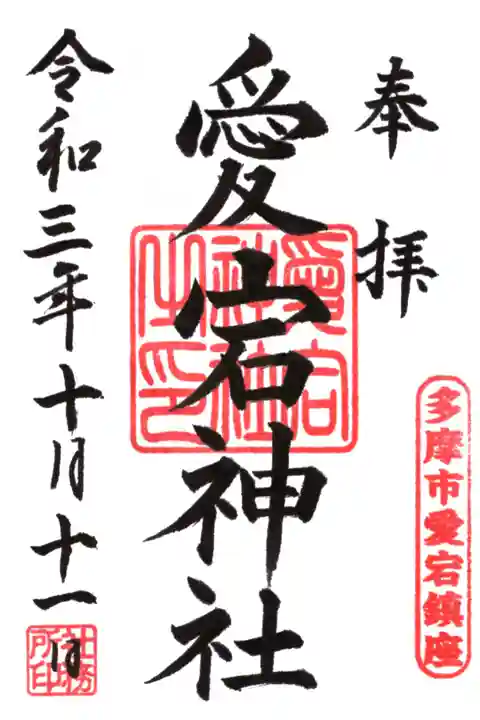 奉拝
多摩市愛宕鎮座
愛宕神社
愛宕
神社
之印
令和三年十月十一日
社務
所印